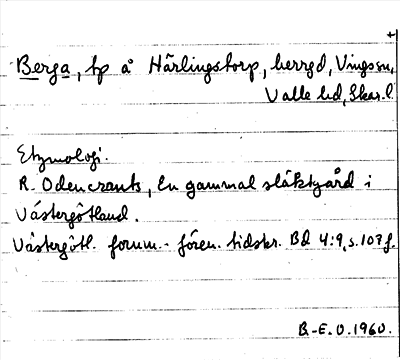 Berga, tp å Härlingstorp, herrgd, Vings sn,
Valle hd, Skar. l.
Etymologi.
R. Odencrants, En gammal släktgård i
Västergötland.
Västergötl. fornm.- fören. tidskr. Bd 4:9, s. 107 f.
B.-E. O. 1960.